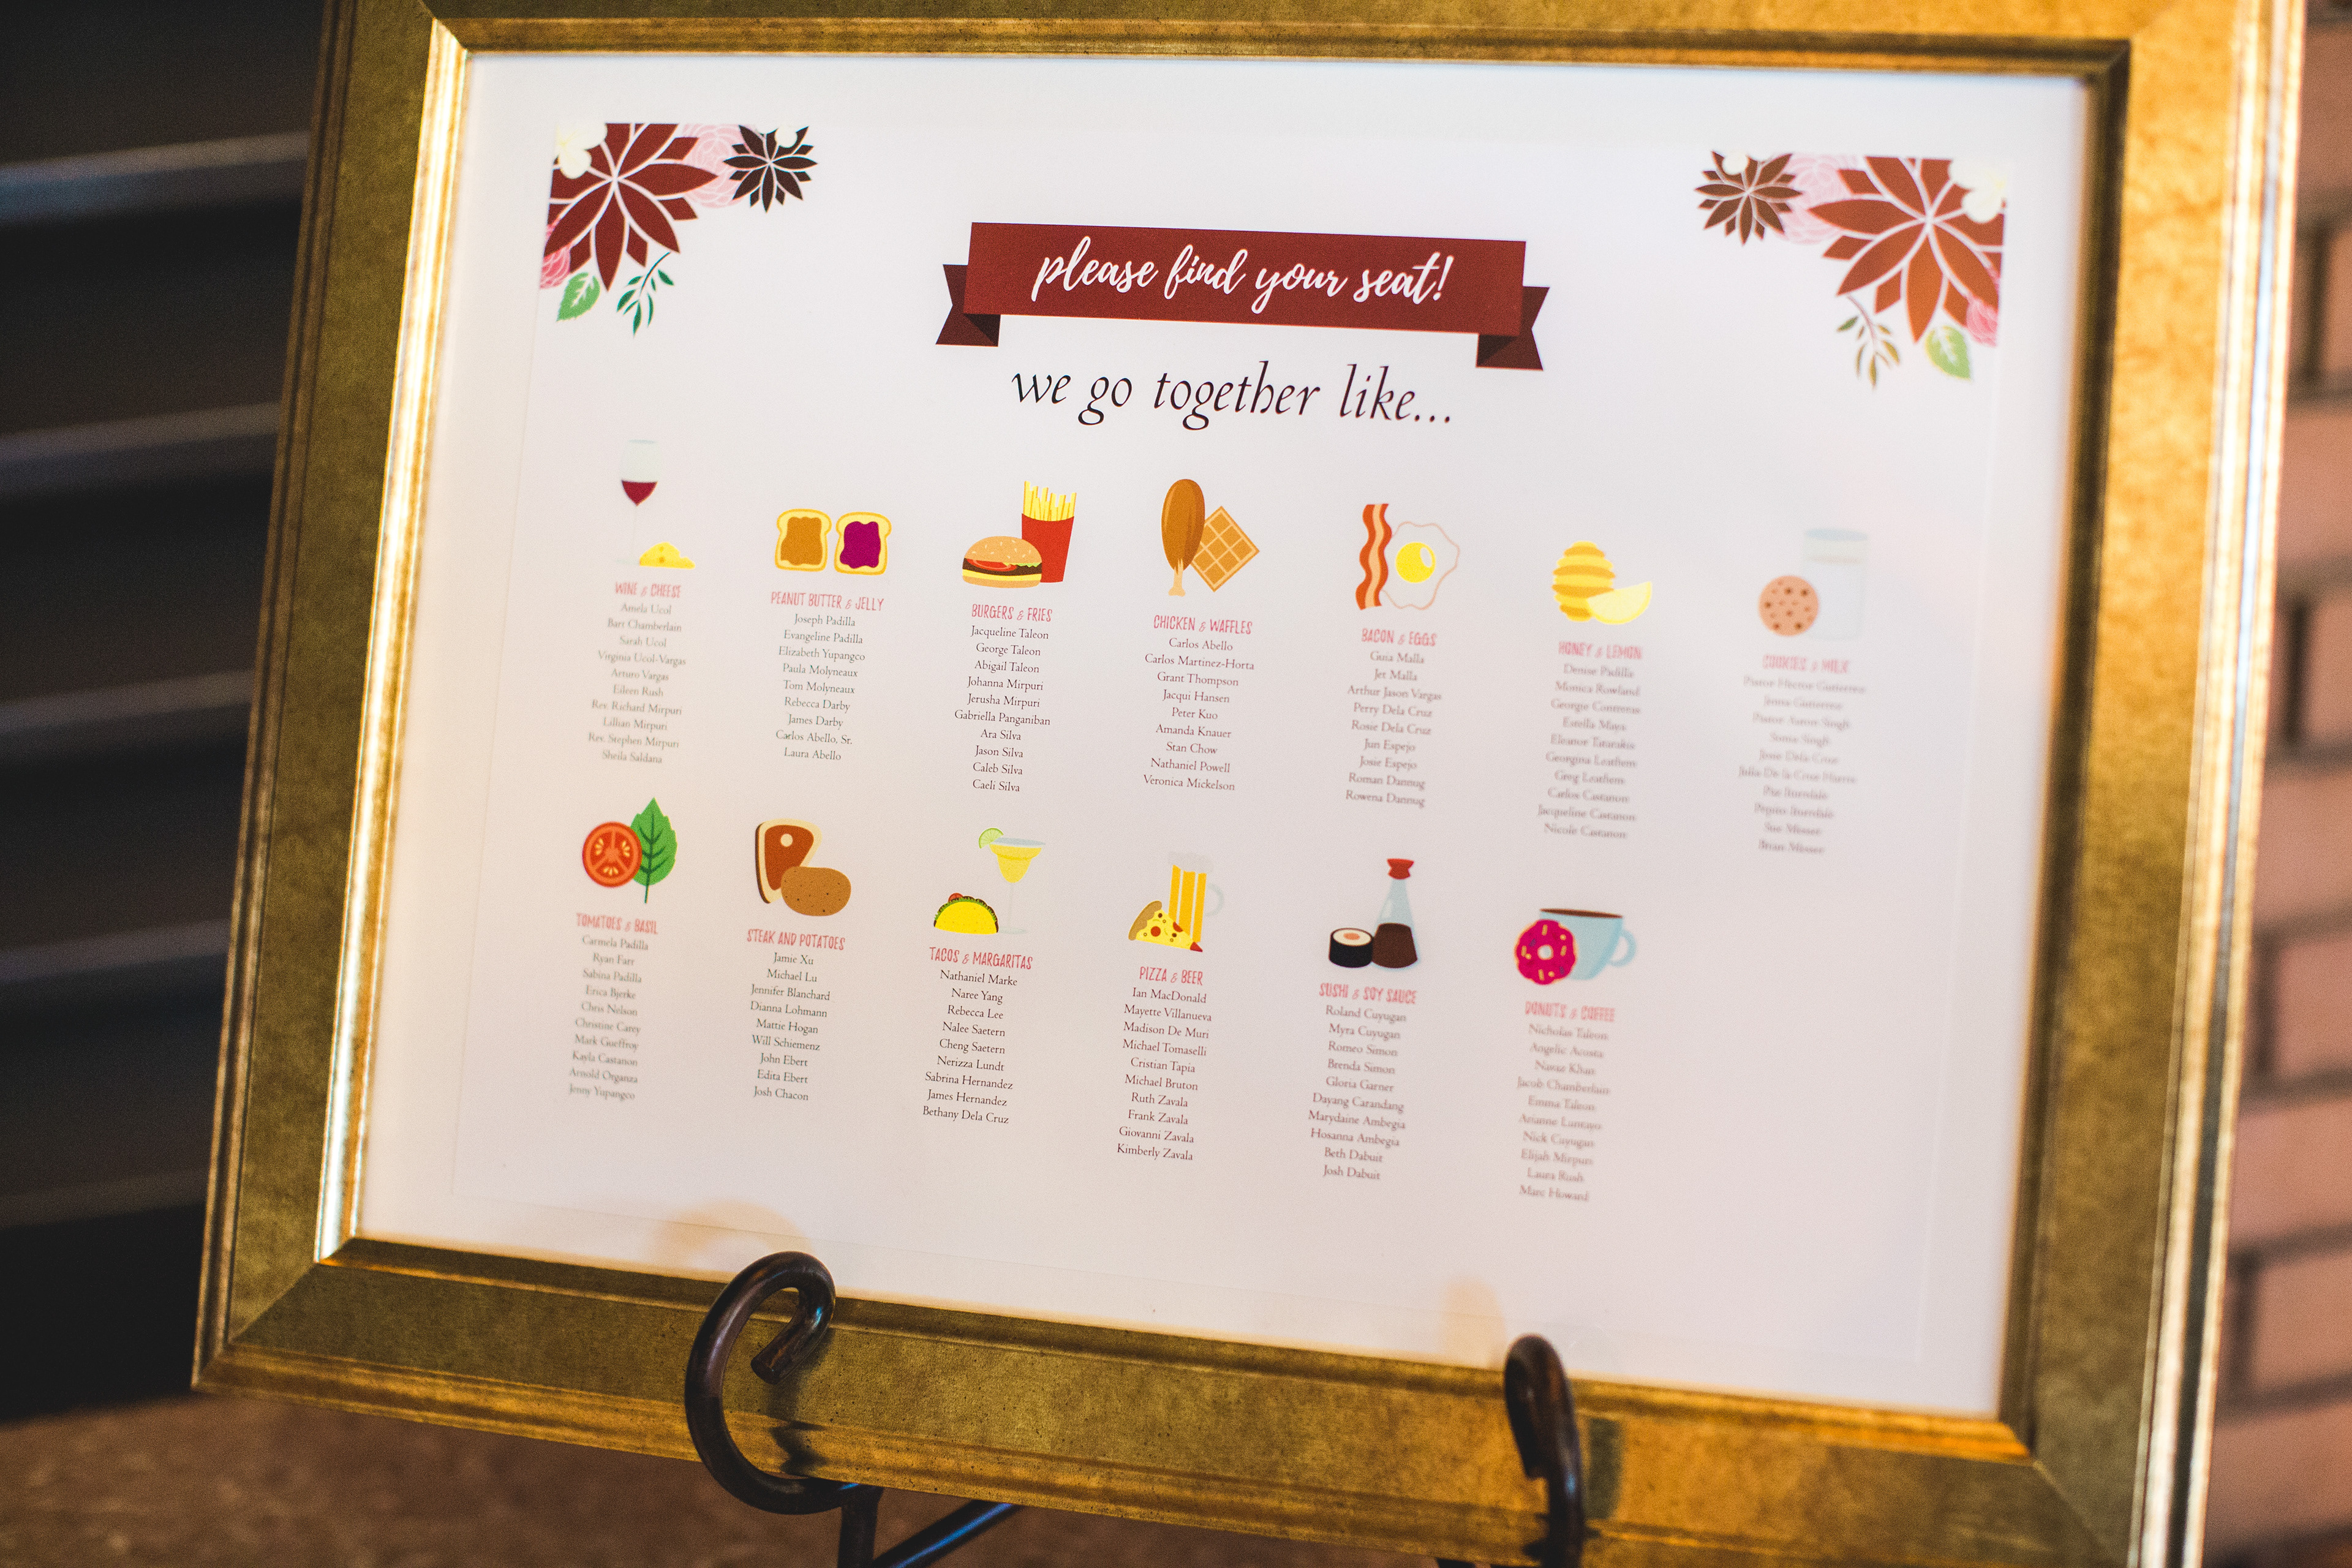 please find your seat!
we go together like...
WINE & CHEESE
Amela Ucol
Bart Chamberlain
Sarah Ucol
Virginia Ucol-Vargas
Arturo Vargas
Eileen Rush
Rev. Richard Mirpuri
Lillian Mirpuri
Rev. Stephen Mirpuri
Sheila Saldana
PEANUT BUTTER & JELLY
Joseph Padilla
Evangeline Padilla
Elizabeth Yupangco
Paula Molyneaux
Tom Molyneaux
Rebecca Darby
James Darby
Carlos Abello, Sr.
Laura Abello
BURGERS & FRIES
Jacqueline Taleon
George Taleon
Abigail Taleon
Johanna Mirpuri
Jerusha Mirpuri
Gabriella Panganiban
Ara Silva
Jason Silva
Caleb Silva
Caeli Silva
CHICKEN & WAFFLES
Carlos Abello
Carlos Martinez-Horta
Grant Thompson
Jacqui Hansen
Peter Kuo
Amanda Knauer
Stan Chow
Nathaniel Powell
Veronica Mickelson
BACON & EGGS
Guia Malla
Jet Malla
Arthur Jason Vargas
Perry Dela Cruz
Rosie Dela Cruz
Jun Espejo
Josie Espejo
Roman Dannug
Rowena Dannug
HONEY & LEMON
Denise Padilla
Monica Rowland
Georgie Contreras
Estella Maya
Eleanor Tatarakis
Georgina Leathem
Greg Leathem
Carlos Castanon
Jacqueline Castanon
Nicole Castanon
COOKIES & MILK
Pastor Hector Gutierrez
Jenna Gutierrez
Pastor Singh
Singh
Jesse Dela Cruz
Julia De la Cruz
Sue Messer
Bryan Messer
TOMATOES & BASIL
Carmela Padilla
Ryan Farr
Sabina Padilla
Erica Bjerke
Chris Nelson
Christine Carey
Mark Gueffroy
Kayla Castanon
Arnold Organza
Jenny Yupangco
STEAK AND POTATOES
Jamie Xu
Michael Lu
Jennifer Blanchard
Dianna Lohmann
Mattie Hogan
Will Schiemenz
John Ebert
Edita Ebert
Josh Chacon
TACOS & MARGARITAS
Nathaniel Marke
Naree Yang
Rebecca Lee
Nalee Saetern
Cheng Saetern
Nerizza Lundt
Sabrina Hernandez
James Hernandez
Bethany Dela Cruz
PIZZA & BEER
Ian MacDonald
Mayette Villanueva
Madison De Muri
Michael Tomaselli
Cristian Tapia
Michael Bruton
Ruth Zavala
Frank Zavala
Giovanni Zavala
Kimberly Zavala
SUSHI & SOY SAUCE
Roland Cuyugan
Myra Cuyugan
Romeo Simon
Brenda Simon
Gloria Garner
Dayang Carandang
Marydaine Ambegia
Hosanna Ambegia
Beth Dabuit
Josh Dabuit
DONUTS & COFFEE
Nicholas Taleon
Angelic Acosta
Nawaz Khan
Jacob Chamberlain
Emma Taleon
Arianne Luntayo
Nick Cuyugan
Elijah Mirpuri
Laura Rush
Marc Howard